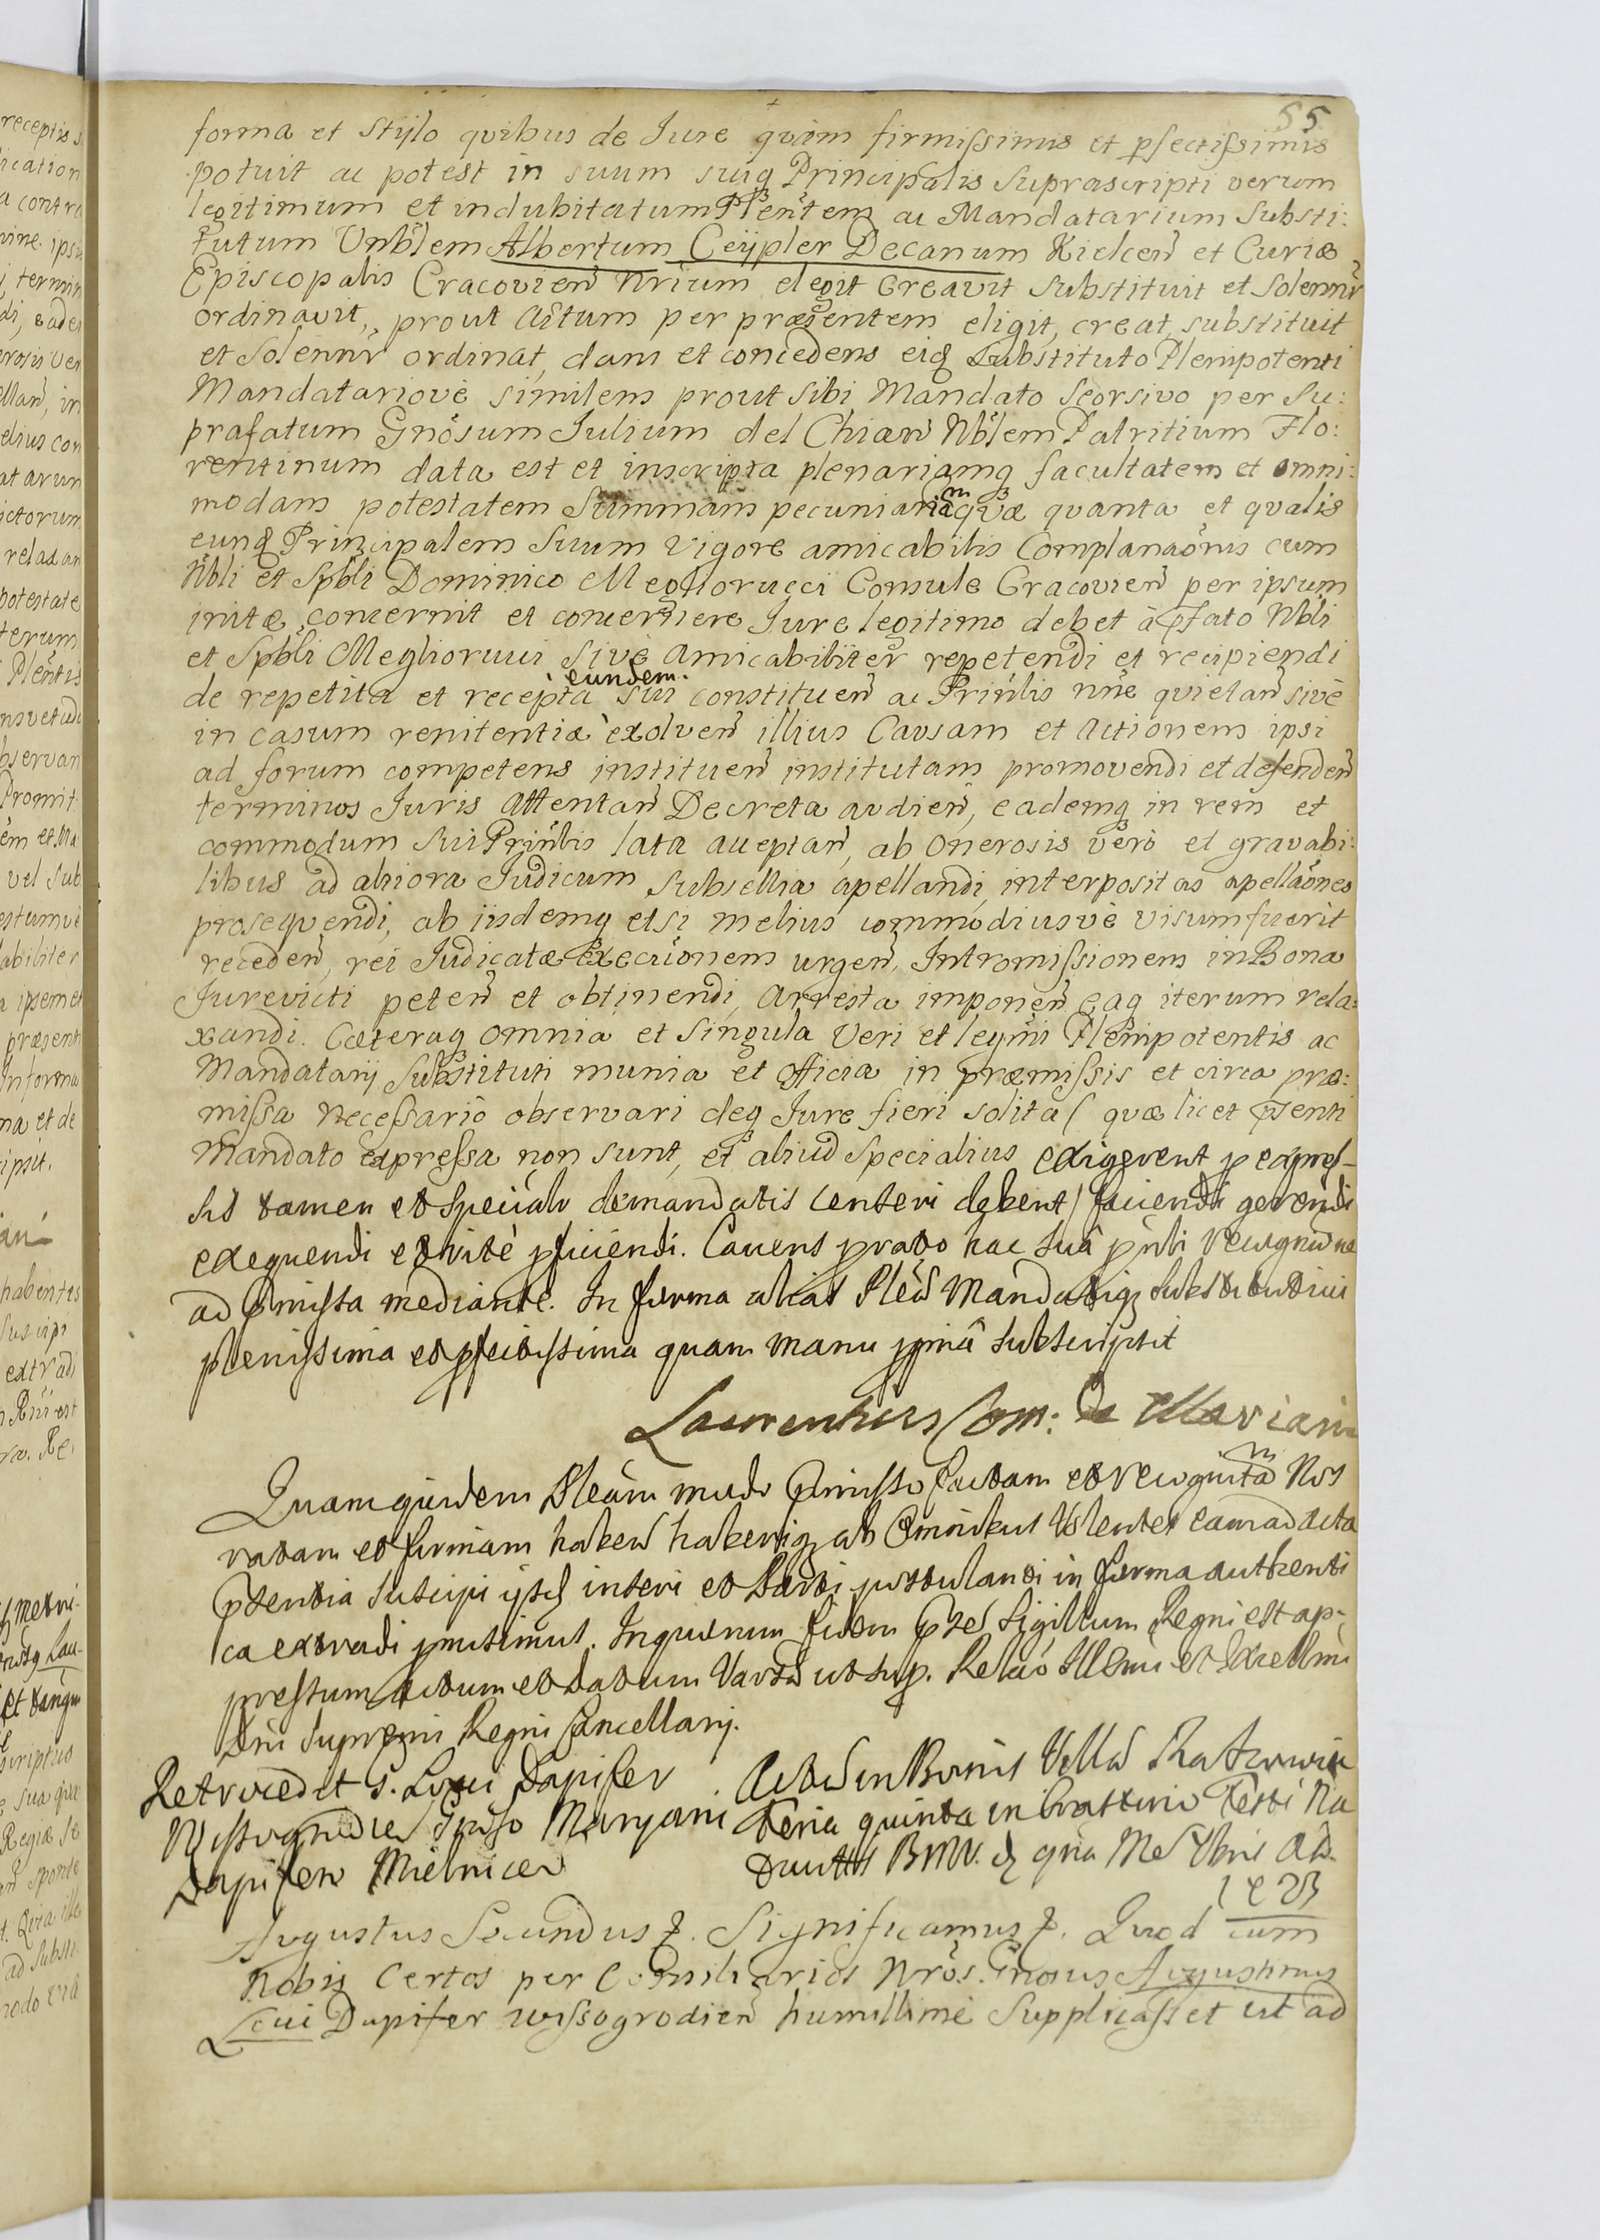 55
forma et Stylo qvibus de Jure qvam firmissimis et pfectissimis
potuit ac potest in suum suiq Principalis Suprascripti verum
legitimum et indubitatum Plentem ac Mandatarium Substi:
tutum Vnblem Albertum Ceypler Decanum Kielcen et Curiæ
Episcopalis Cracovien Nrium elegit Creavit Substituit et Solennr
ordinavit, prout Actum per præsentem eligit, creat, substituit
et Solennr ordinat, dans et concedens eidq Substituto Plenipotenti
Mandatariove similem prout sibi Mandato Seorsivo per Su:
prafatum Gnosum Julium del Chiaro Nblem Patritium Flo:
rentinum data est et inscripta plenariamq facultatem et omni:
modam potestatem Summam pecuniariam qvæ qvanta et qvalis
eunq Principalem Suum vigore amicabilis Complanaonis cum
Nbli et Spbli Dominico Megliorucci Consule Cracovien per ipsum
initæ concernit et concernere Jure legitimo debet à pfato Nbli
et Spbli Megliorucci Sivè Amicabiliter repetendi et recipiendi
de repetita et recepta eundem sui constituen ac Prinlis nne qvietan sivè
in casum renitentiæ exolven illius Causam et Actionem ipsi
ad forum competens instituen institutam promovendi et defenden
terminos Juris Attentan Decreta audien, eademq in rem et
commodum Sui Prinlis lata acceptan, ab Onerosis verò et gravabi:
libus ad altiora Judicum Subsellia apellandi, interpositas apellaones
prosequendi, ab iisdemq etsi melius commodiusvè visum fuerit
receden, rei Judicatæ Execuonem urgen, Intromissionem in Bona
Jurevicti peten et obtinendi, Arresta imponen eaq iterum rela:
xandi. Cæteraq omnia et Singula Veri et legmi Plenipotentis ac
Mandatarij Substituti munia et officia in præmissis et circa præ:
missa necessariò observari deq Jure fieri solita (quæ licet psenti
Mandato expressa non sunt, et aliud Specialius exigerent p expres-
sis tamen et specialr demandatis censeri debent) faciendi gerendi
exequendi et ritè pficiendi. Cavens prato hac suâ pnti recognne
ad pmissa mediante. In forma alias Plen Mandatiq substitutivi
plenissima et pfectissima quam manu ppriâ subscripsit
Laurentius Com: De Mariani
Quam quidem Pleam modo pmisso factam et recognitam Nos
ratam et firmam haben haberiq ab Omnibus Volentes eam ad acta
ptentia suscipi ijsq inseri et Parti postulanti in forma authenti
ca extradi pmisimus. In quorum fidem ptes Sigillum Regni est ap-
pressum Actum et Datum Vars ut sup. Relao Illmi et Excellmi
Dni Supremi Regni Cancellarij.
Retrocedit G. Loui Dapifer
Wissogrodien Gnoso Maryani
Dapifero Mielnicen
Act in Bonis Villa
Feria quinta in Crastino Festi Na
BMV. Ad.
Augustus Secundus z. Significamus z. Quod cum
Nobis Certos per Consiliarios Nros. Gnosus Augustinus
Loui Dapifer Wissogrodien humillimè Supplicasset ut ad